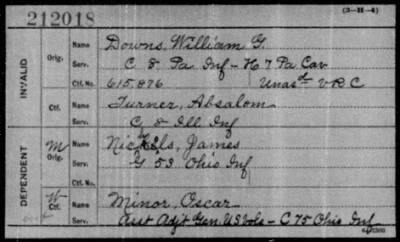 212018
(3-H-4)
INVALID
Orig. Name Downs, William G.
Serv. C 8 Pa Inf - H 7 Pa Cav
Ctf. No. 615,876 Unasd V R C
Ctf. Name Turner, Absalom
Serv. C 8 Ill Inf
DEPENDENT
M Orig. Name Nickels, James
Serv. G 53 Ohio Inf
Ctf. No.
W Ctf. Name Minor, Oscar
Serv. Asst Adjt Gen. U S Vols - C 75 Ohio Inf